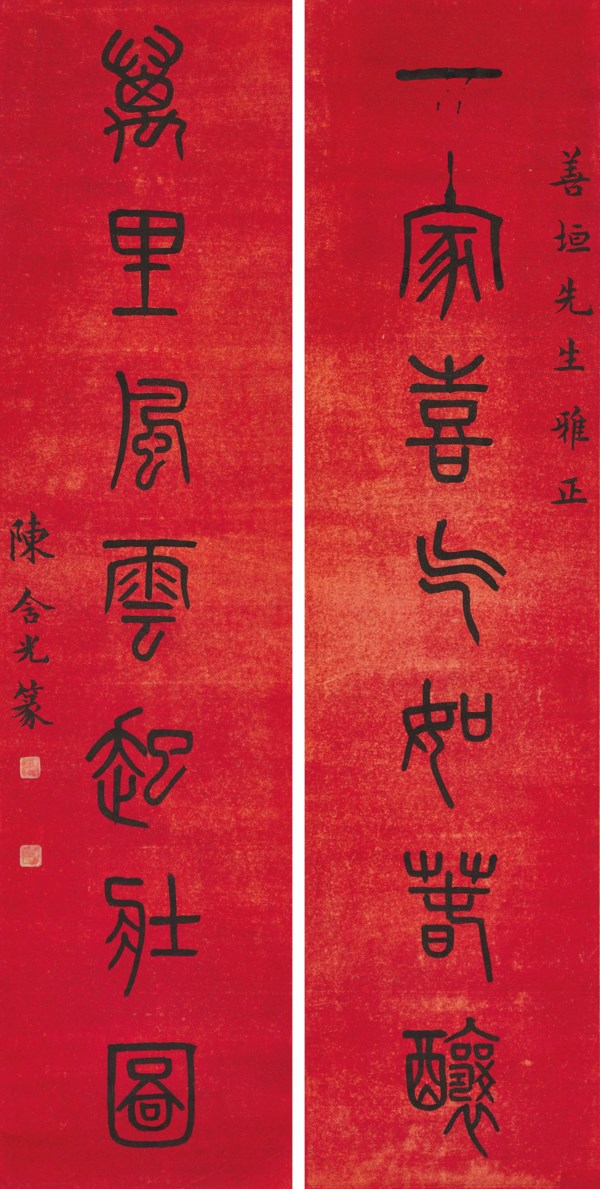 善垣先生雅正
一家喜气如春釀
萬里風雲起壯圖
陳含光篆